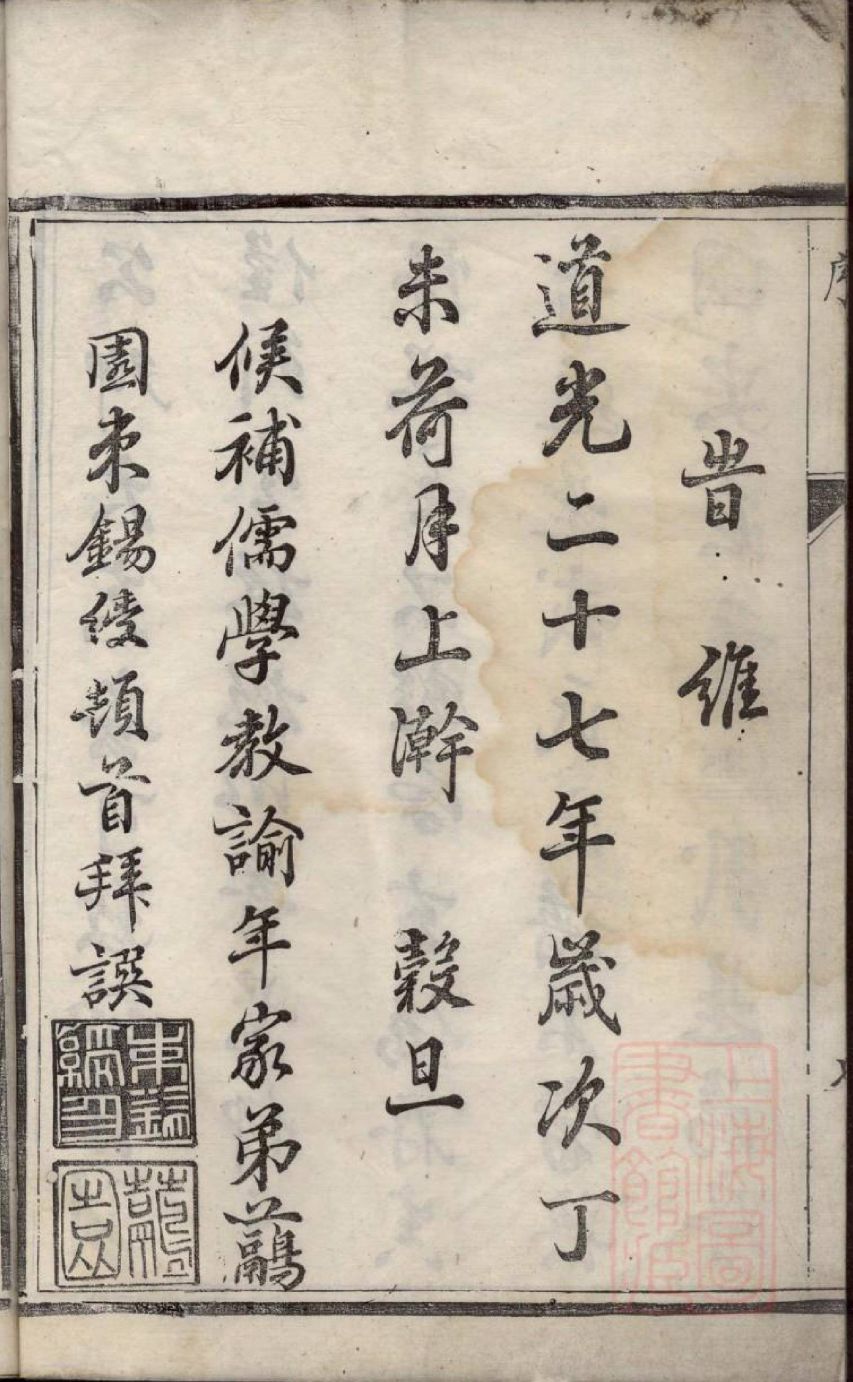 旹維
道光二十七年歲次丁
未荷月上澣 穀旦
候補儒學教諭年家弟虉
園束錫綬頓首拜譔
上海圖
書館藏